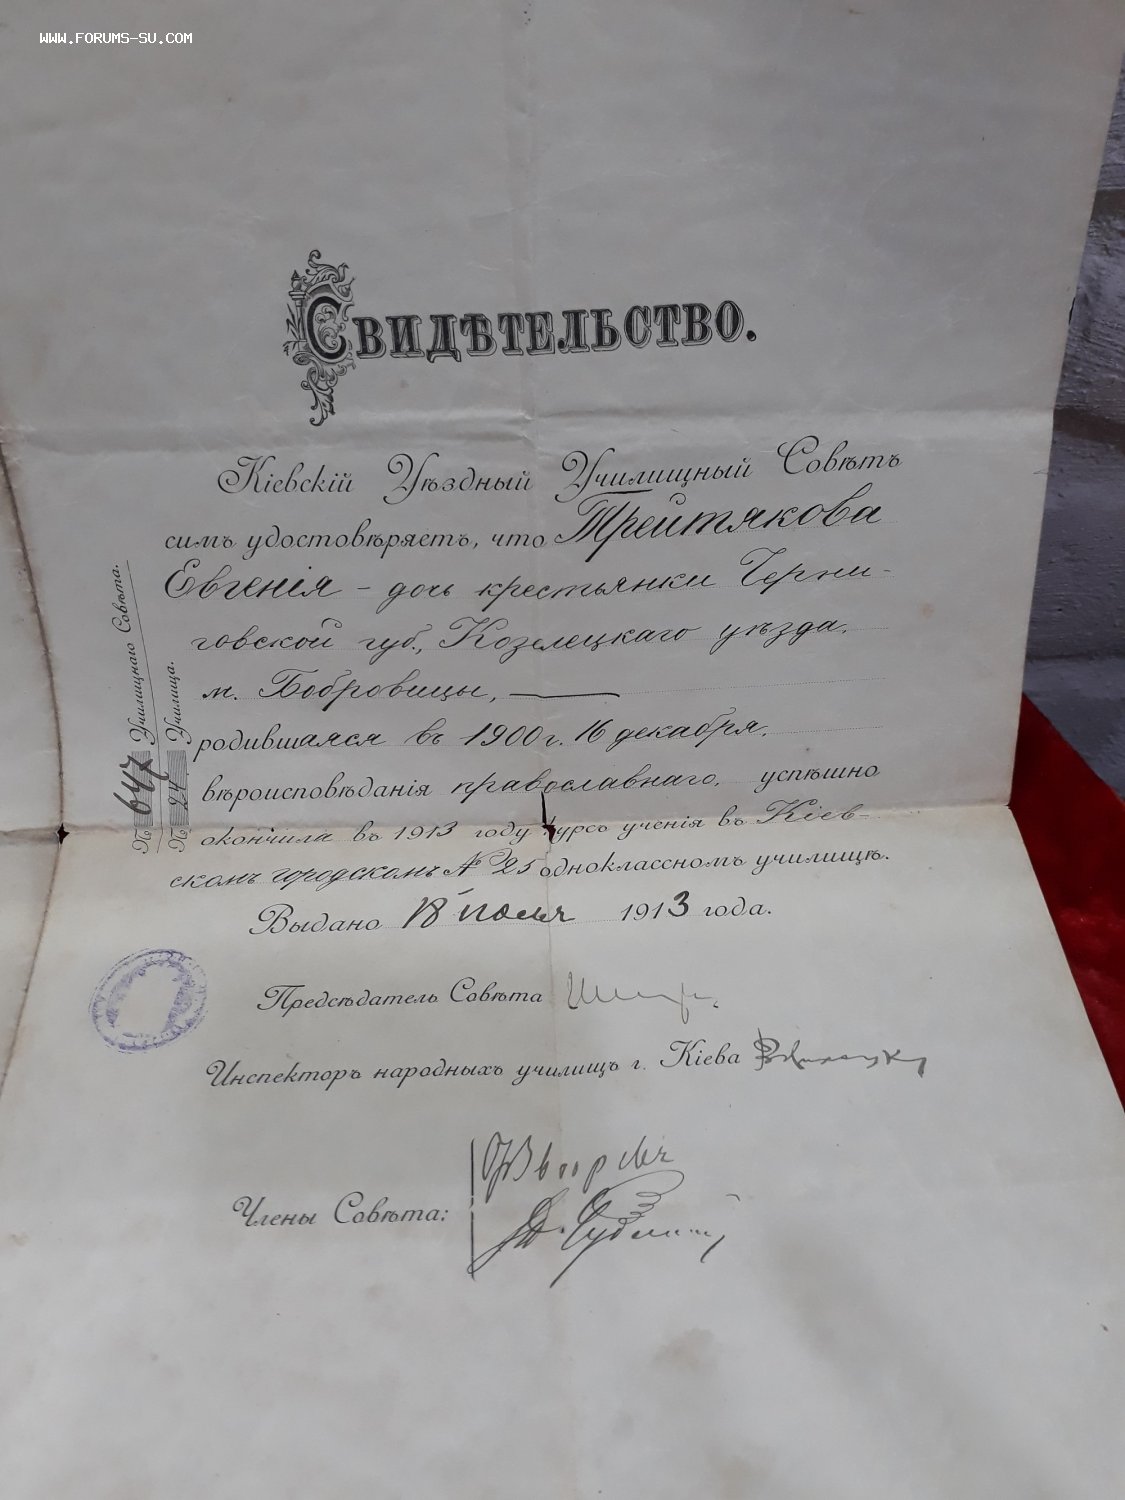 WWW.FORUMS-SU.COM
Свидѣтельство.
Кіевскій Уѣздный Училищный Совѣтъ
симъ удостовѣряетъ, что Трейтякова
Евгенія - дочь крестьянки Черни-
говской губ., Козелецкаго уѣзда,
м. Бобровицы,
родившаяся въ 1900 г. 16 декабря,
вѣроисповѣданія православнаго, успѣшно
окончила въ 1913 году курсъ ученія въ Кіев-
скомъ городскомъ № 25 одноклассномъ училищѣ.
Выдано 18 1913 года.
№ 647 Училищнаго Совѣта.
№ 24 Училища.
Предсѣдатель Совѣта
Инспекторъ народныхъ училищъ г. Кіева
Члены Совѣта: